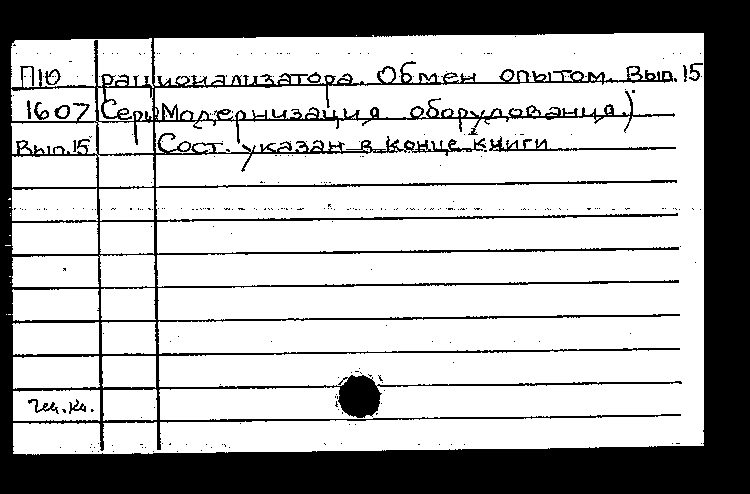 П10 рационализатора. Обмен опытом. Вып. 15
1607 Серия Модернизация оборудования.)
Вып.15 Сост. указан в конце книги